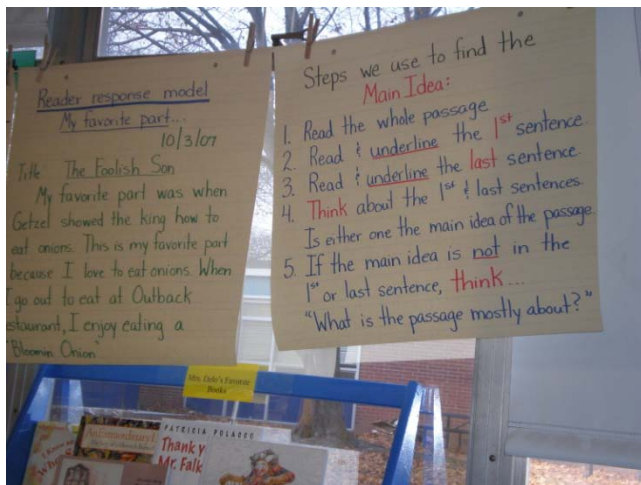 Reader response model
My favorite part...
10/3/07
Title The Foolish Son
My favorite part was when
Getzel showed the king how to
eat onions. This is my favorite part
because I love to eat onions. When
I go out to eat at Outback
staurant, I enjoy eating a
"Bloomin Onion"
Steps we use to find the
Main Idea:
1. Read the whole passage
2. Read & underline the 1st sentence.
3. Read & underline the last sentence.
4. Think about the 1st & last sentences.
Is either one the main idea of the passage.
5. If the main idea is not in the
1st or last sentence, think...
"What is the passage mostly about?"
Favorite
Books
An Extraordinary
PATRICIA POLACCO
Thank y
Mr. Falk